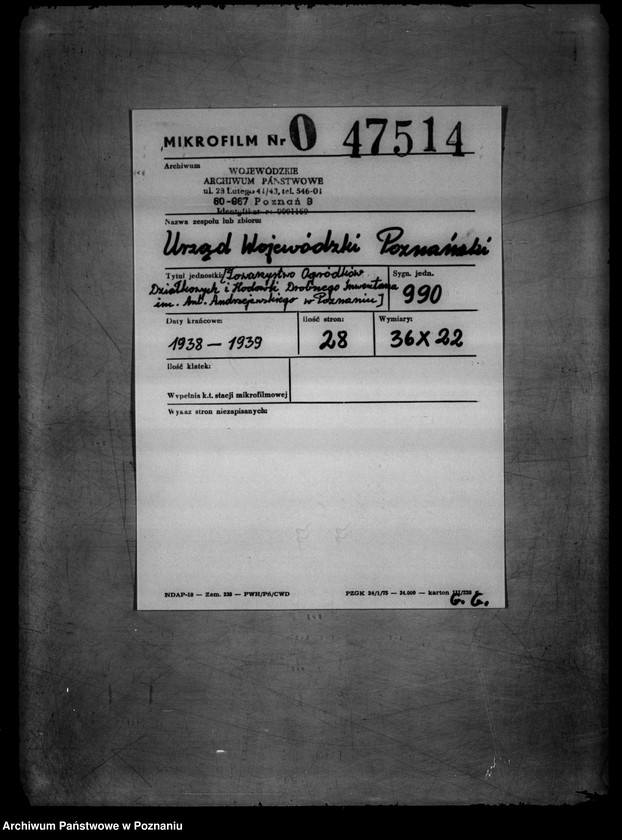 MIKROFILM Nr O 47514
Archiwum
WOJEWÓDZKIE
ARCHIWUM PAŃSTWOWE
ul. 23 Lutego 41/43, tel. 546-01
60-967 Poznań 9
Nazwa zespołu lub zbioru:
Urząd Wojewódzki Poznański
Tytuł jednostki: [Towarzystwo Ogródków
Działkowych i Hodowli Drobnego Inwentarza
im. Ant. Andrzejewskiego w Poznaniu]
Sygn. jedn.
990
Daty krańcowe:
1938 – 1939
Ilość stron:
28
Wymiary:
36 X 22
Ilość klatek:
Wypełnia k.t. stacji mikrofilmowej
Wykaz stron niezapisanych:
NDAP-18 — Zam. 230 — PWH/Pń/CWD
PZGK 24/1/75 — 24.000 — karton
G. G.
Archiwum Państwowe w Poznaniu